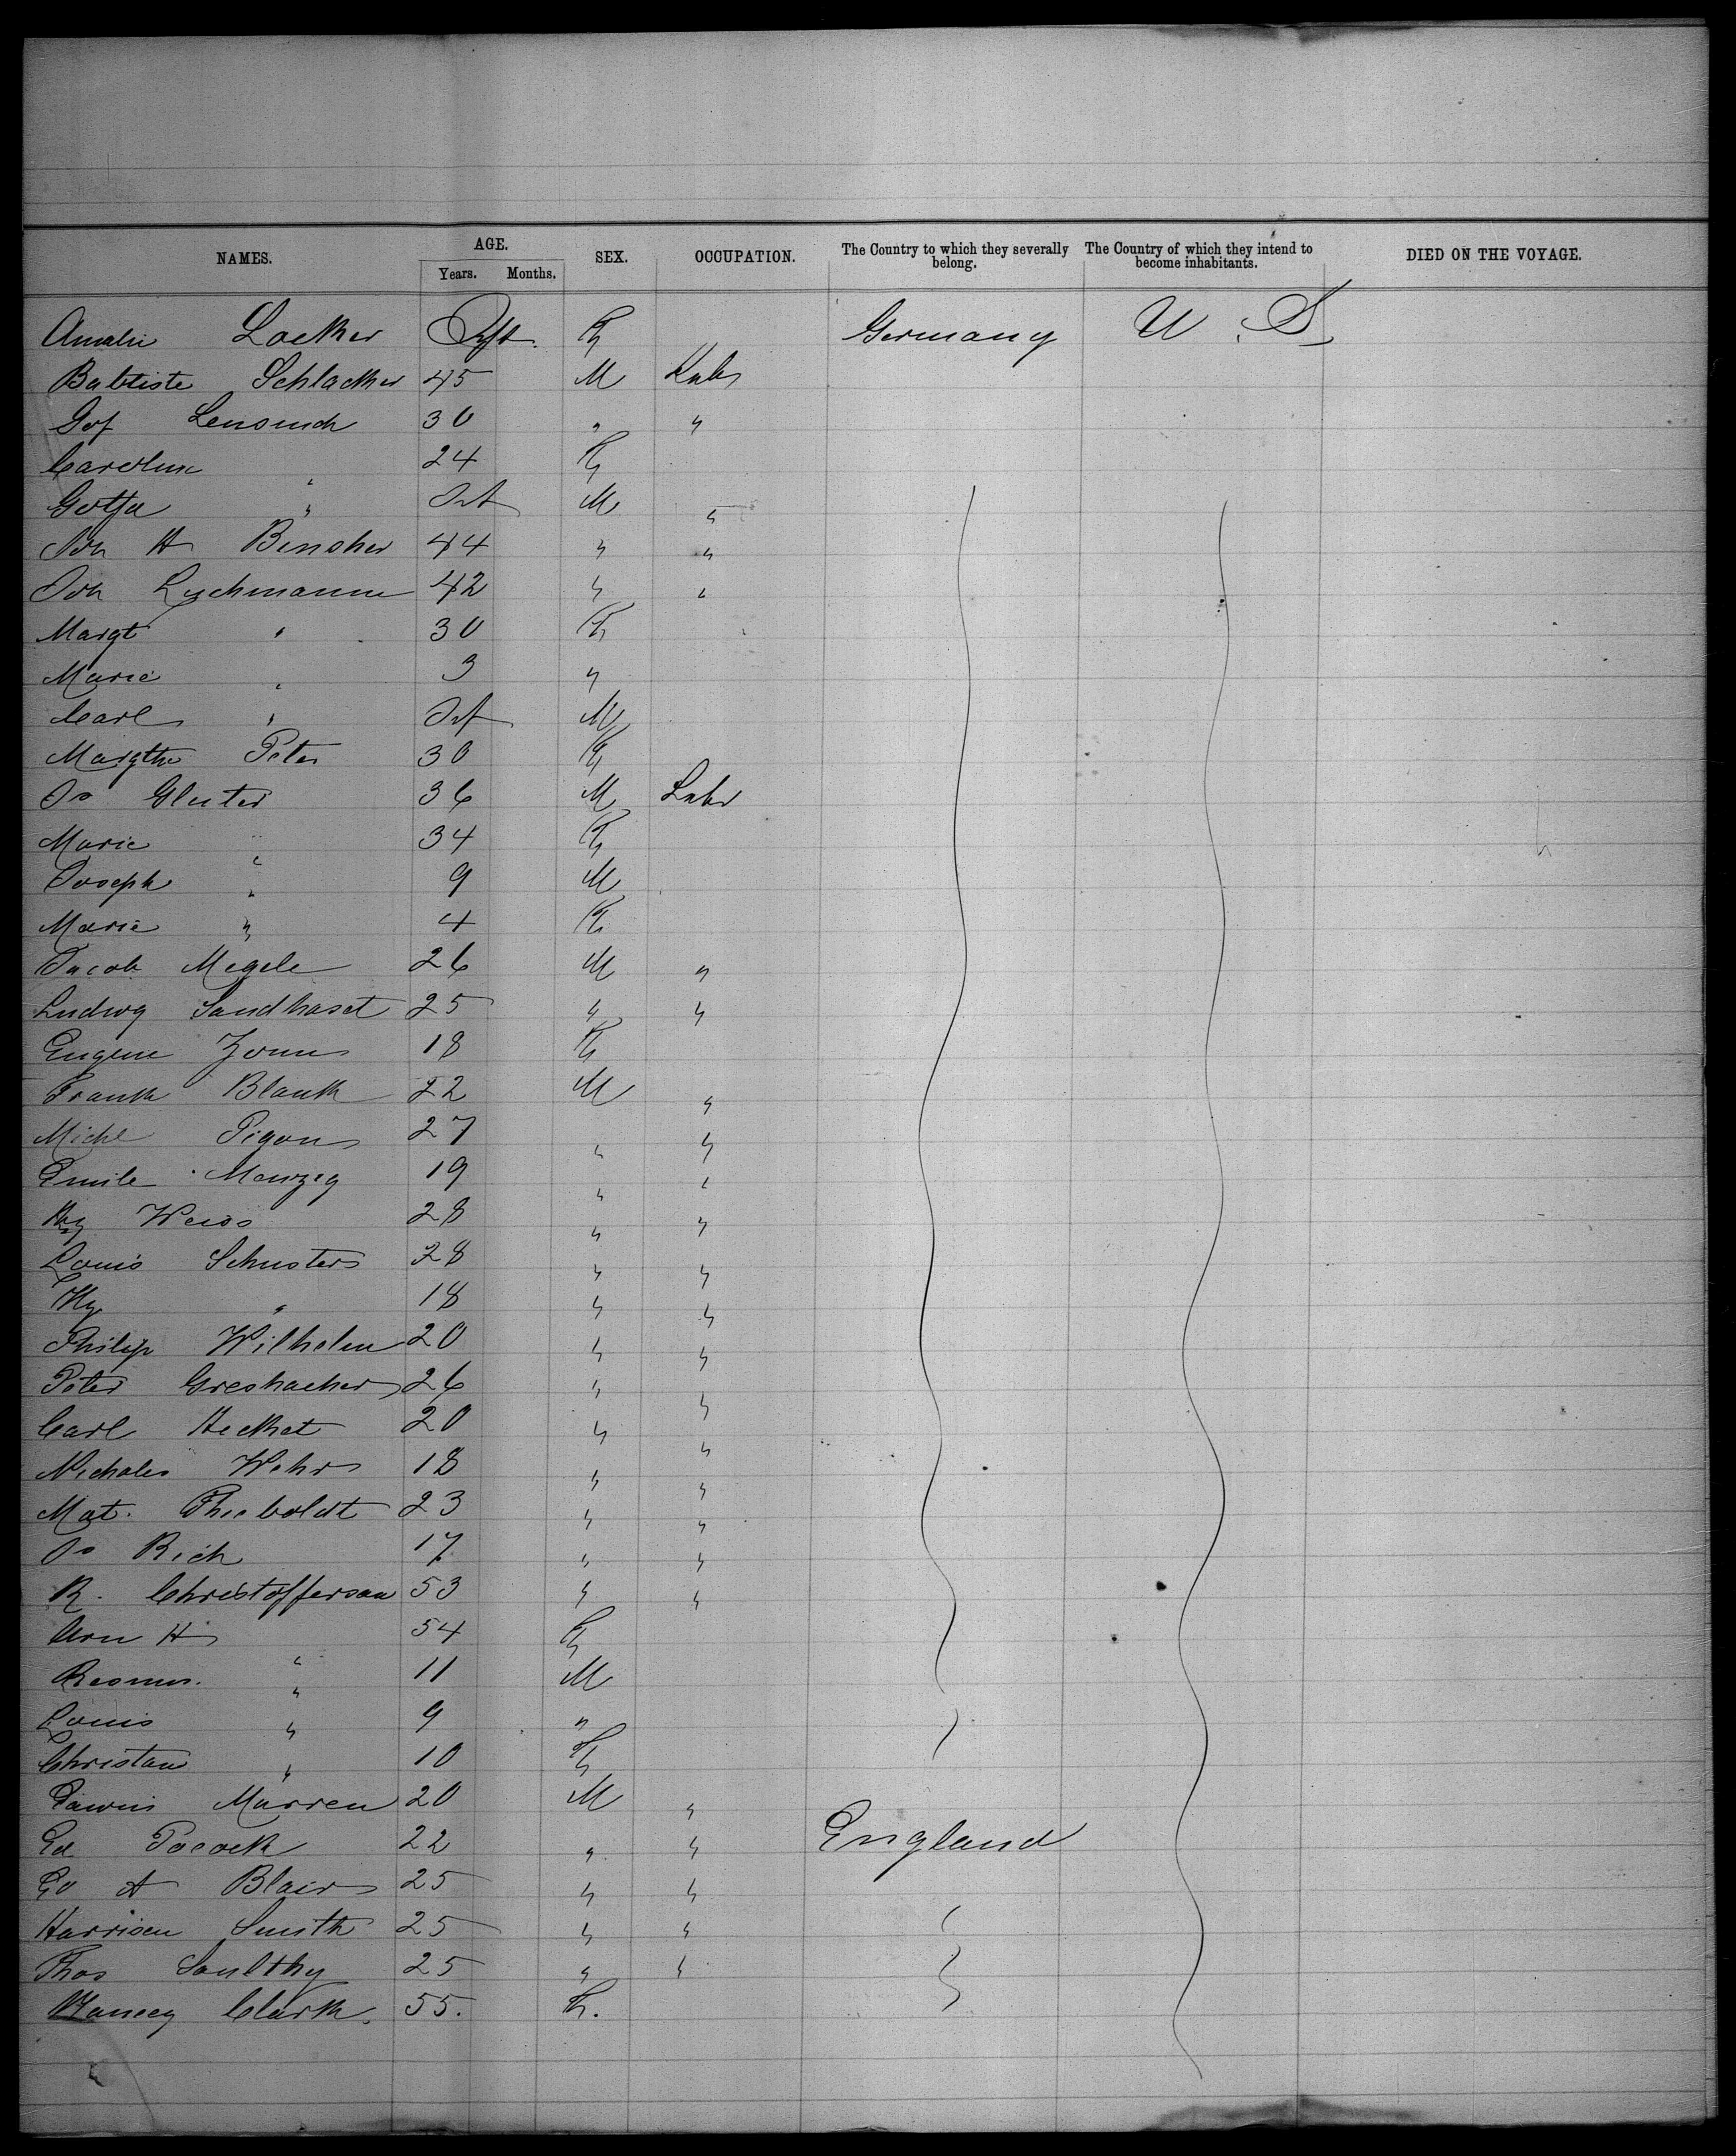 NAMES. AGE. Years. Months. SEX. OCCUPATION. The Country to which they severally belong. The Country of which they intend to become inhabitants. DIED ON THE VOYAGE.
Amalie Locker Inft. F Germany U.S.
Babtiste Schlacker 45 M Labr
Jos 30 " "
Caroline " 24 F
" Inf M "
Joh H Binsker 44 " "
Joh Lychmann 42 " "
Margt " 30 F
Marie " 3 "
Carl " Inf M
Margthe Peter 30 F
Jos Gluter 36 M Labr
Marie " 34 F
Joseph " 9 M
Marie " 4 F
Jacob Megele 26 M "
Ludwg Sandhaset 25 " "
Eugene Zonn 18 F
Frank Blank 22 M "
Michl Pigon 27 " "
Emile Mewzig 19 " "
Hy Weiss 28 " "
Louis Schuster 28 " "
Hy " 18 " "
Philip Wilhelm 20 " "
Peter Greshacher 26 " "
Carl Heckat 20 " "
Nicholas Wehr 18 " "
Mat. Thieboldt 23 " "
Jos Rich 17 " "
R. Christofferson 53 " "
Ann H " 54 F
Rasmus. " 11 M
Louis " 9 "
Christan " 10 F
Marren 20 M "
Ed Pocock 22 " " England
Go A Blair 25 " "
Harrison Smith 25 " "
Thos Saulthy 25 " "
Nancy Clark. 55. F.